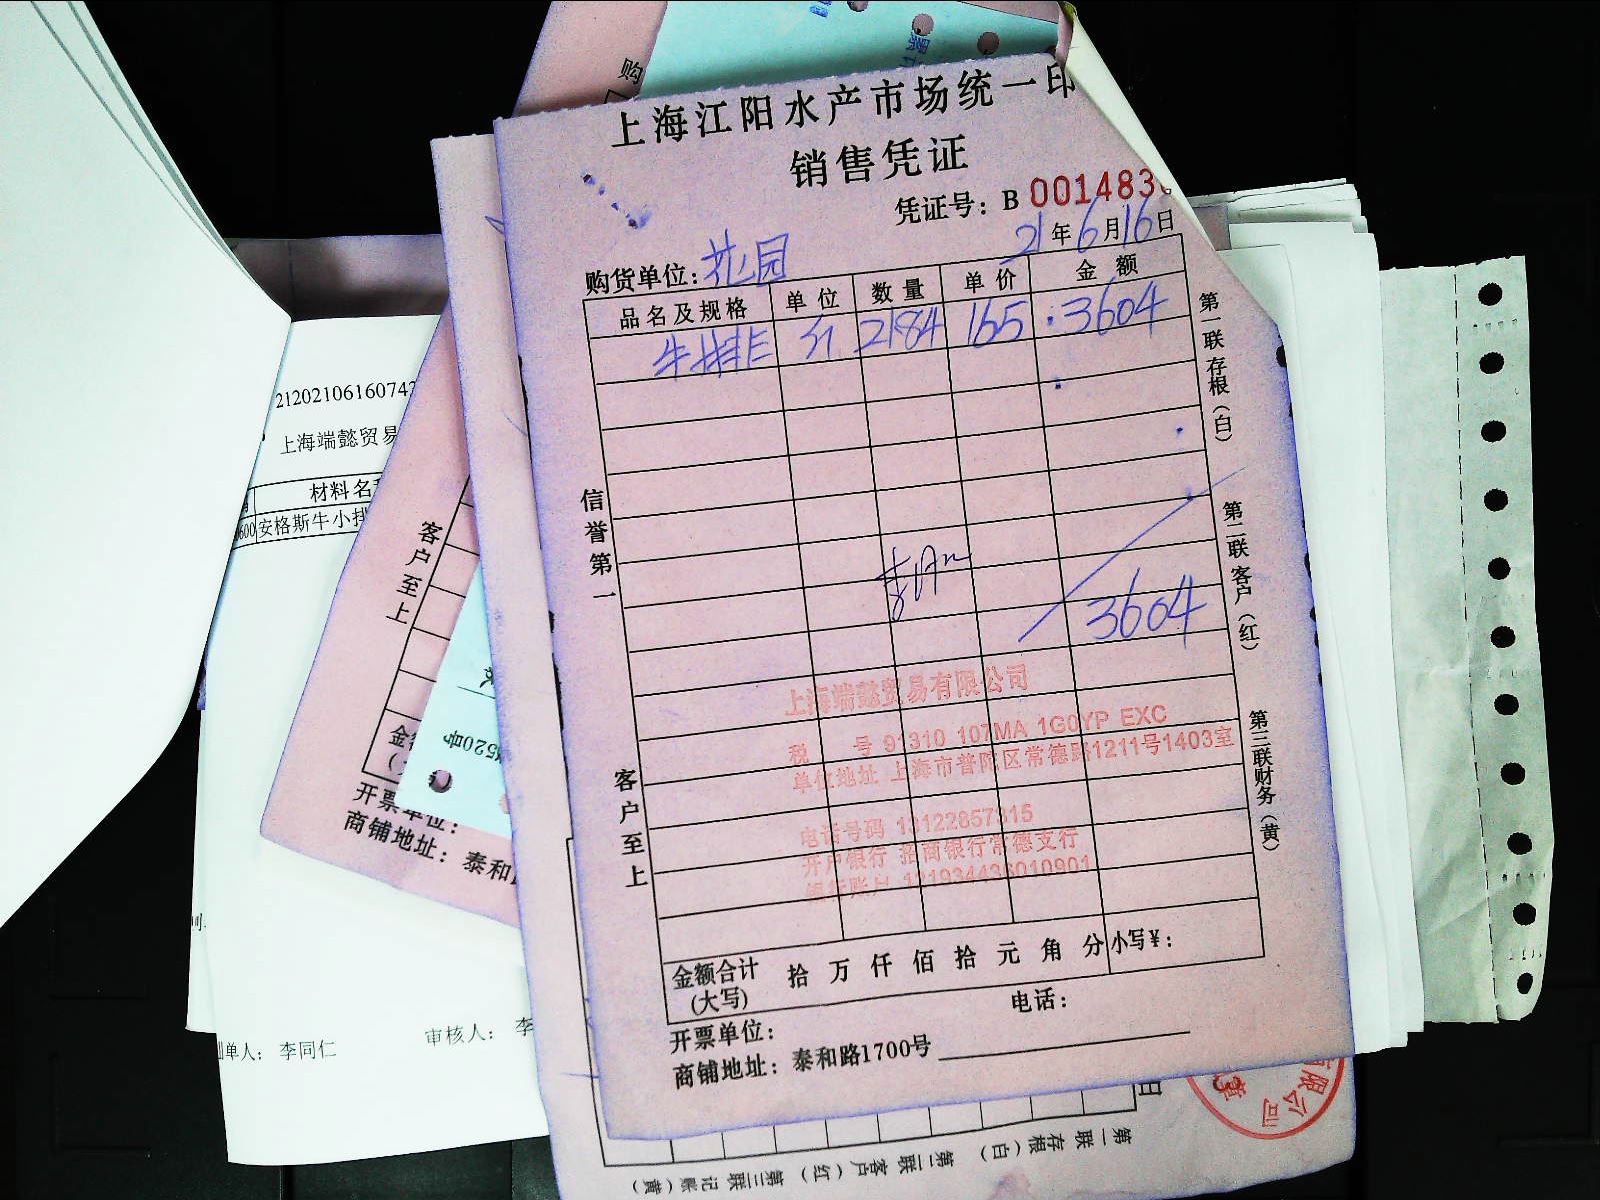 上海江阳水产市场统一印
销售凭证
凭证号：B 001483
21年6月16日
购货单位：花园
品名及规格 单位 数量 单价 金额
牛排 斤 2184 165 3604
3604
信誉第一
客户至上
第一联存根（白）
第二联客户（红）
第三联财务（黄）
上海端懿贸易有限公司
税 号 91310 107MA 1G0YP EXC
单位地址 上海市普陀区常德路1211号1403室
电话号码 13122857315
开户银行 招商银行常德支行
银行账户 121934436010901
金额合计（大写） 拾 万 仟 佰 拾 元 角 分 小写￥：
电话：
开票单位：
商铺地址：泰和路1700号
购
2120210616074
上海端懿贸易
材料名
600 安格斯牛小排
客户至上
金
520号
开票单位：
商铺地址：泰和
单人：李同仁
审核人：李
日
有限公司
第一联存根（白） 第二联客户（红） 第三联记账（黄）